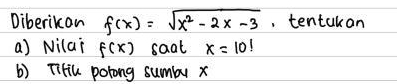 Diberikan f(x) = √x² - 2x - 3 . tentukan
a) Nilai f(x) saat x = 10!
b) Titik potong sumbu x